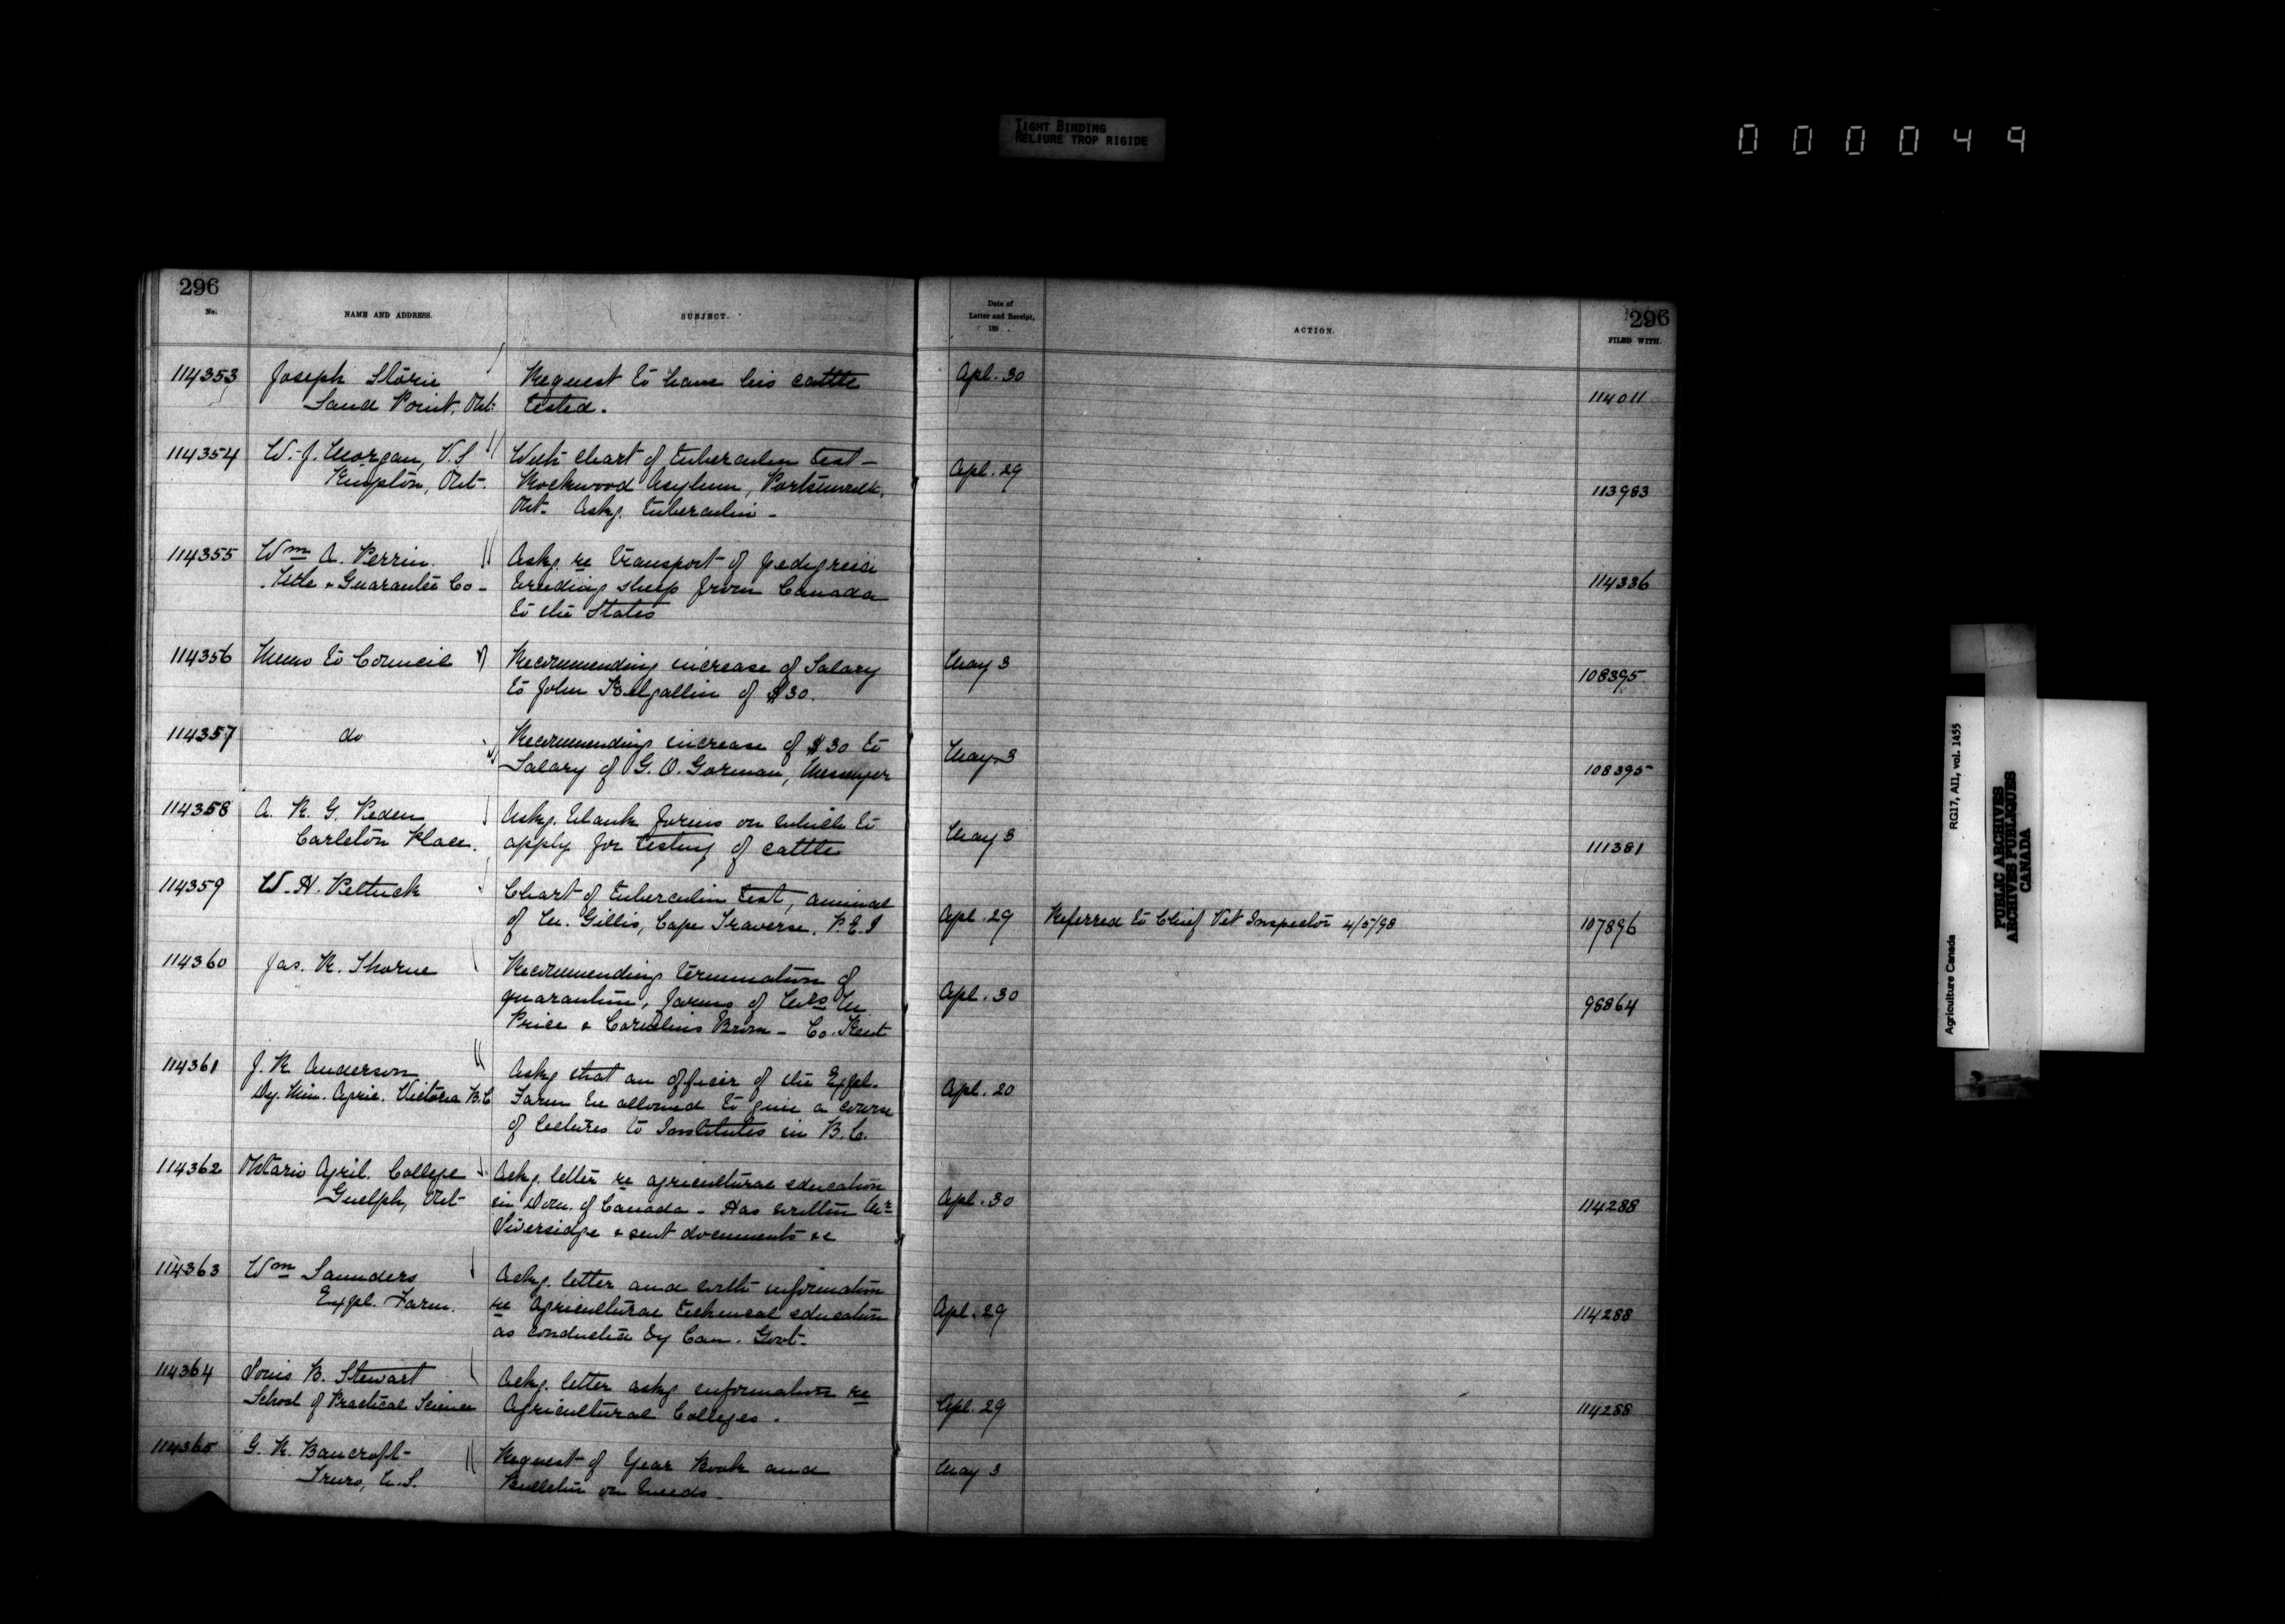 TIGHT BINDING
RELIURE TROP RIGIDE
000049
296
296
No.
NAME AND ADDRESS.
SUBJECT.
Date of
Letter and Receipt,
189 .
ACTION.
FILED WITH.
114353 Joseph Storie Request to have his cattle Apl. 30
Sand Point, Ont. tested. 114011
114354 W. J. Morgan, V.S. With chart of tuberculin test - Apl. 29
Kingston, Ont. Rockwood Asylum, Portsmouth, 113983
Ont. Askg. tuberculin -
114355 Wm A. Perrin. Askg. re transport of pedigreed
Title & Guarantee Co - breeding sheep from Canada 114336
to the States
114356 Memo to Council Recommending increase of Salary May 3
to John of $30. 108395
114357 do Recommending increase of $30 to May 3
Salary of G. O. Gorman, Messenger 108395
114358 A. R. G. Peden Askg. blank forms on which to May 3
Carleton Place. apply for testing of cattle 111381
114359 W. H. Pethick Chart of tuberculin test, animal
of M. Gillis, Cape Traverse, P.E.I Apl. 29 Referred to Chief Vet Inspector 4/5/98 107896
114360 Jas. R. Thorne Recommending termination of
quarantine, farms of Apl. 30 98864
Price & Cornelius Brown - Co. Kent
114361 J. R. Anderson Askg that an officer of the Expl.
Dy. Min. Agric. Victoria B.C Farm be allowed to give a course Apl. 20
of lectures to Institutes in B.C.
114362 Ontario Agril. College Ackg. letter re agricultural education
Guelph, Ont- in Dom. of Canada - Has written Mr Apl. 30 114288
Liversidge & sent documents &c
114363 Wm Saunders Ackg. letter and with information
Expl. Farm. re agricultural technical education Apl. 29 114288
as conducted by Can. Govt-
114364 Louis B. Stewart Ackg. letter askg information re
School of Practical Science Agricultural Colleges. Apl. 29 114288
114365 G. R. Bancroft - Request of Year Book and May 3
Truro, N.S. Bulletin on weeds.
Agriculture Canada RG17, AII, vol. 1455
PUBLIC ARCHIVES
ARCHIVES PUBLIQUES
CANADA